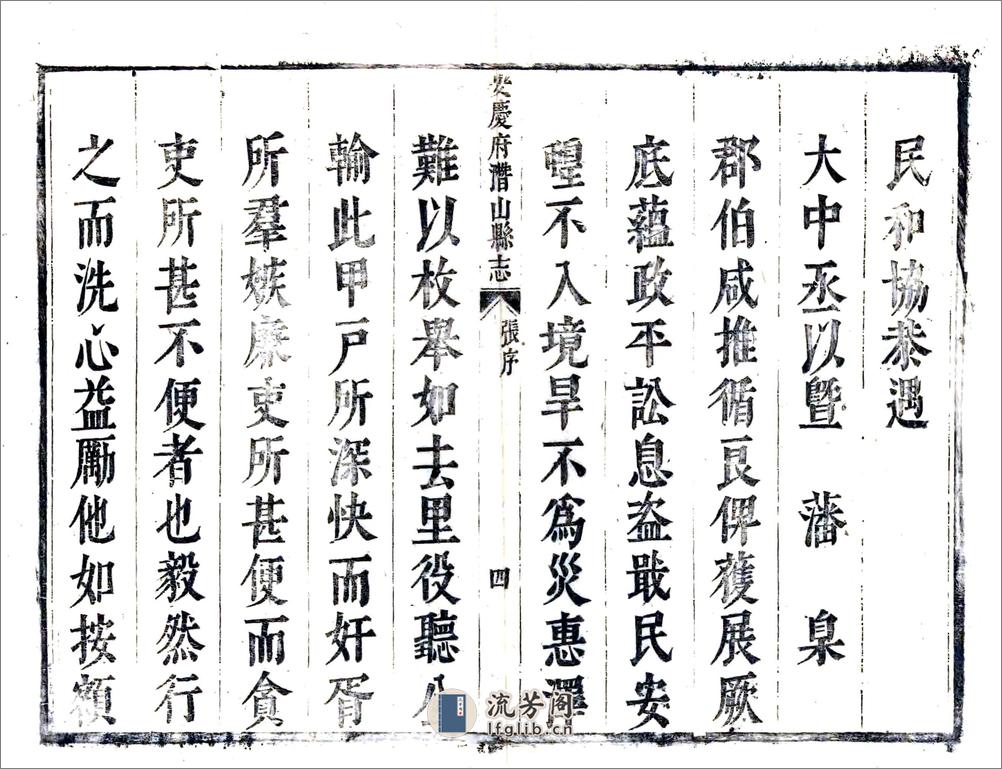 民和協恭遇
大中丞以暨 藩 臬
郡伯咸推循良俾獲展厥
底蘊政平訟息盗戢民安
蝗不入境旱不爲災惠澤
安慶府潛山縣志 張序 四
難以枚舉如去里役聽
輸此甲戸所深快而奸胥
所羣嫉廉吏所甚便而貪
吏所甚不便者也毅然行
之而洗心益厲他如按
流芳阁
lfglib.cn.com